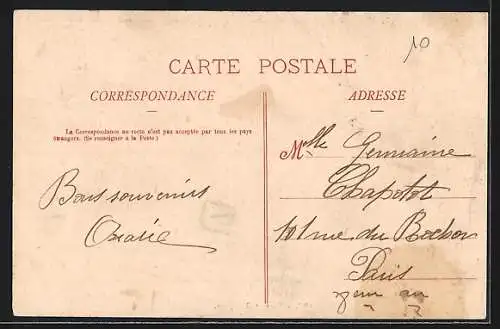 10
CARTE POSTALE
CORRESPONDANCE
ADRESSE
La Correspondance au recto n'est pas acceptée par tous les pays
étrangers. (Se renseigner à la Poste.)
Melle Germaine
Chapotot
Bons souvenirs
101 rue du
Paris